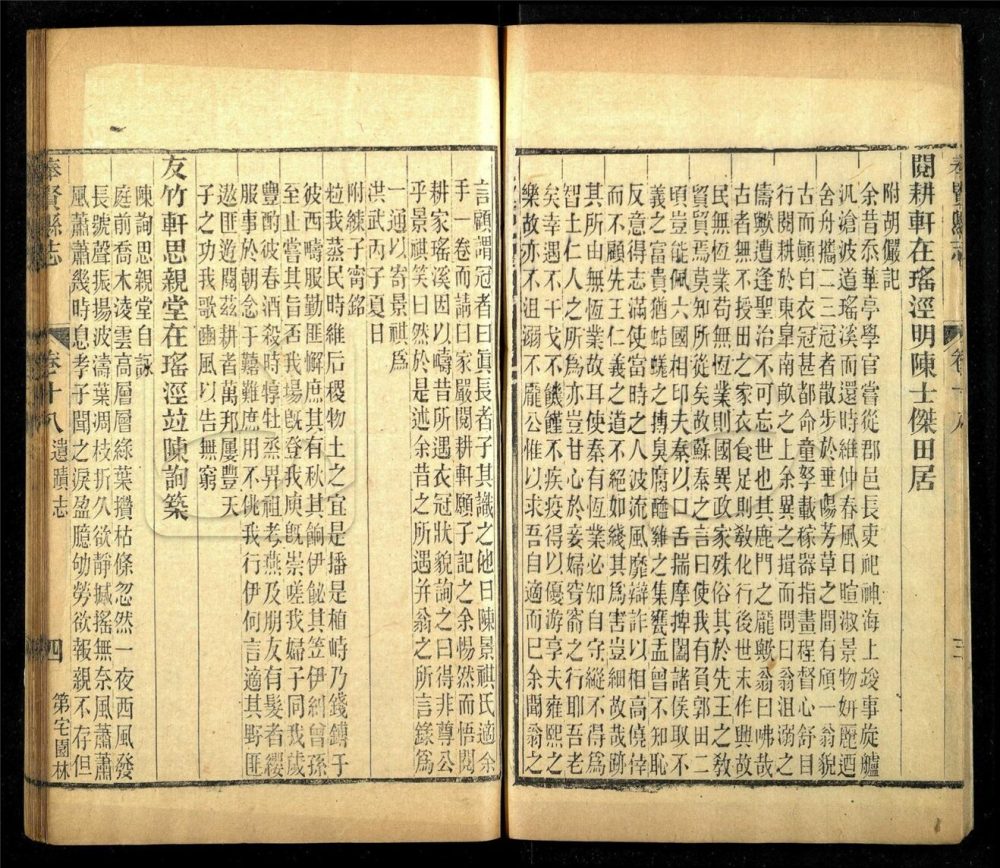 閱耕軒在瑤涇明陳士傑田居
附胡儼記
余昔忝華亭學官嘗從郡邑長吏祀神海上竣事旋艫
汎滄波道瑤溪而還時維仲春風日暄淑景物妍麗迺
舍舟攜二三冠者散步於垂楊芳草之間有頎一翁貌
古而顧白衣冠甚都命童孥載稼器指畫程督心舒目
行閱耕於東皐南畝之上余異之揖而問曰翁沮溺之
儔歟遭逢聖治不可忘世也其鹿門之龐歟翁曰咈哉
古者無不授田之家衣食足則教化行後世末作興故
民無恆業苟無恆業則國異政家殊俗其於先王之教
貿貿焉莫知所從矣故蘇秦之言曰使我有負郭田二
頃豈能佩六國相印夫秦以口舌揣摩捭闔諸侯取不
義之富貴猶蛣蜣之摶臭腐醯雞之集甕盂曾不知恥
而不顧先王仁義之道不絕如綫其為害豈細故哉跡
反意得志滿使當時之人波流風靡辯詐以相高僥倖
其所由無恆業故耳使秦有恆業必知自守縱不得為
智士仁人之所為亦豈甘心於妾婦穿窬之行耶吾老
矣幸遇不干戈不饑饉不疾疫得以優游享夫雍熙之
樂故亦不沮溺不龐公惟以求吾自適而已余聞翁之
言顧謂冠者曰眞長者子其識之他日陳景祺氏適余
手一卷而請曰家嚴閱耕軒願子記之余惕然而悟閱
耕家瑤溪因以疇昔所遇衣冠狀貌詢之曰得非尊公
乎景祺笑曰然於是述余昔之所遇幷翁之所言錄為
一通以寄景祺為
洪武丙子夏日
附練子甯銘
粒我蒸民時維后稷物土之宜是播是植峙乃錢鎛于
彼西疇服勤匪懈庶其有秋其餉伊飶其笠伊糾曾孫
至止嘗其旨否我場旣登我庾旣崇嗟我婦子同我歲
豐酌彼春酒殺時犉牡烝畀祖考燕及朋友有髮者纓
服事於朝念念于艱難庶用不佻我行伊何言適其野匪
遨匪遊閱茲耕者萬邦屢豐天
子之功我歌豳風以告無窮
友竹軒思親堂在瑤涇竝陳詢築
陳詢思親堂自詠
庭前喬木淩雲高層層綠葉攢枯條忽然一夜西風發
長號聲振揚波濤葉凋枝折久欲靜撼搖無奈風蕭蕭
風蕭蕭幾時息孝子聞之淚盈臆劬勞欲報親不存但
奉賢縣志
卷十八
遺蹟志
四
第宅園林